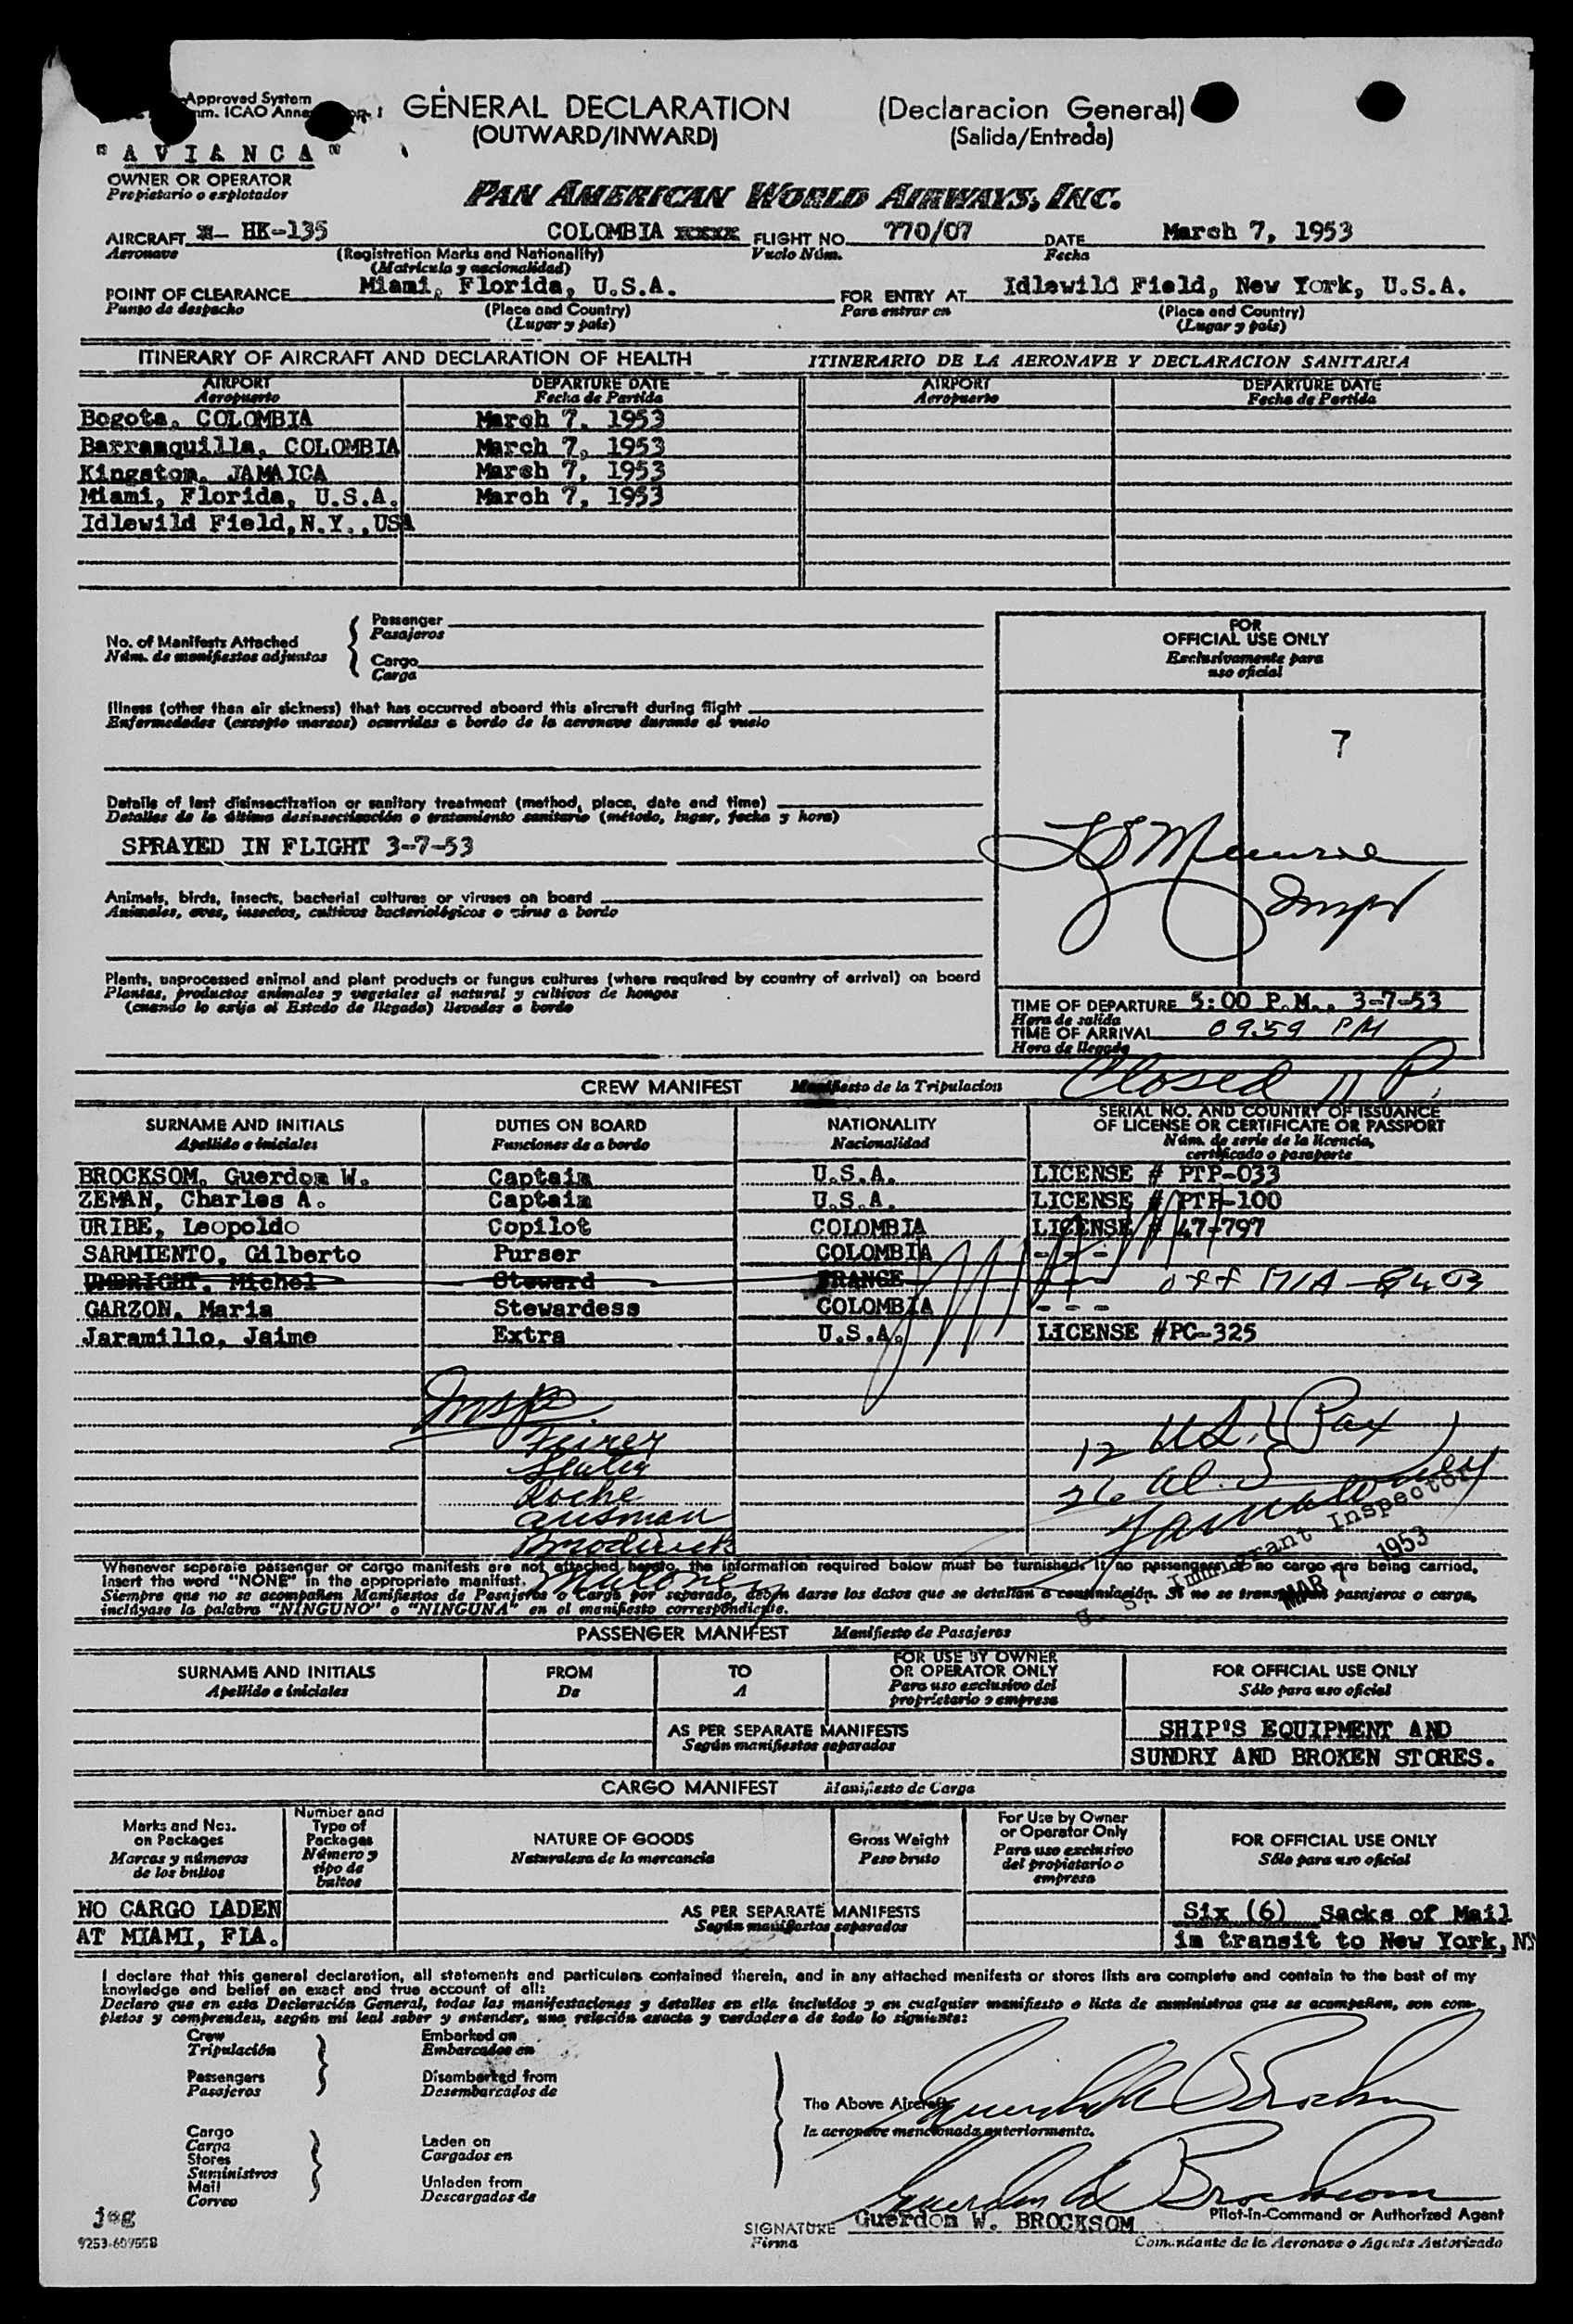 Approved System
mm. ICAO Anne
GENERAL DECLARATION (Declaracion General)
(OUTWARD/INWARD) (Salida/Entrada)
"AVIANCA"
OWNER OR OPERATOR
Propietario o explotador
PAN AMERICAN WORLD AIRWAYS, INC.
AIRCRAFT HK-135 COLOMBIA xxxx FLIGHT NO. 770/07 DATE March 7, 1953
Aeronave (Registration Marks and Nationality) Vuelo Núm. Fecha
(Matricula y nacionalidad)
POINT OF CLEARANCE Miami, Florida, U.S.A. FOR ENTRY AT Idlewild Field, New York, U.S.A.
Punto de despacho (Place and Country) Para entrar en (Place and Country)
(Lugar y pais) (Lugar y pais)
ITINERARY OF AIRCRAFT AND DECLARATION OF HEALTH ITINERARIO DE LA AERONAVE Y DECLARACION SANITARIA
AIRPORT DEPARTURE DATE AIRPORT DEPARTURE DATE
Aeropuerto Fecha de Partida Aeropuerto Fecha de Partida
Bogota, COLOMBIA March 7, 1953
Barranquilla, COLOMBIA March 7, 1953
Kingston, JAMAICA March 7, 1953
Miami, Florida, U.S.A. March 7, 1953
Idlewild Field,N.Y.,USA
No. of Manifests Attached
Núm. de manifiestos adjuntos
Passenger
Pasajeros
Cargo
Carga
FOR
OFFICIAL USE ONLY
Exclusivamente para
uso oficial
Illness (other than air sickness) that has occurred aboard this aircraft during flight
Enfermedades (excepto mareos) ocurridas a bordo de la aeronave durante el vuelo
7
Details of last disinsectization or sanitary treatment (method, place, date and time)
Detalles de la última desinsectización o tratamiento sanitario (método, lugar, fecha y hora)
SPRAYED IN FLIGHT 3-7-53
Insp
Animals, birds, insects, bacterial cultures or viruses on board
Animales, aves, insectos, cultivos bacteriológicos o virus a bordo
Plants, unprocessed animal and plant products or fungus cultures (where required by country of arrival) on board
Plantas, productos animales y vegetales al natural y cultivos de hongos
(cuando lo exija el Estado de llegada) llevados a bordo
TIME OF DEPARTURE 5:00 P.M., 3-7-53
Hora de salida
TIME OF ARRIVAL 0959 PM
Hora de llegada
Closed 11 P.
CREW MANIFEST Manifiesto de la Tripulacion
SURNAME AND INITIALS DUTIES ON BOARD NATIONALITY SERIAL NO. AND COUNTRY OF ISSUANCE OF LICENSE OR CERTIFICATE OR PASSPORT
Apellido e iniciales Funciones de a bordo Nacionalidad Núm. de serie de la licencia, certificado o pasaporte
BROCKSOM, Guerdon W. Captain U.S.A. LICENSE # PTP-033
ZEMAN, Charles A. Captain U.S.A. LICENSE # PTP-100
URIBE, Leopoldo Copilot COLOMBIA LICENSE # 47-797
SARMIENTO, Gilberto Purser COLOMBIA - - -
UMBRICHT, Michel Steward FRANCE off MIA
GARZON, Maria Stewardess COLOMBIA - - -
Jaramillo, Jaime Extra U.S.A. LICENSE #PC-325
Insp.
12 U.S. } Pax
26 Al.
Roche
Gusman
Broderick
U. S. Immigrant Inspector
MAR 7 1953
Whenever separate passenger or cargo manifests are not attached hereto, the information required below must be furnished. If no passengers or no cargo are being carried,
insert the word "NONE" in the appropriate manifest.
Siempre que no se acompañen Manifiestos de Pasajeros o Carga por separado, deben darse los datos que se detallan a continuación. Si no se transportan pasajeros o carga,
inclúyase la palabra "NINGUNO" o "NINGUNA" en el manifiesto correspondiente.
PASSENGER MANIFEST Manifiesto de Pasajeros
SURNAME AND INITIALS FROM TO FOR USE BY OWNER OR OPERATOR ONLY FOR OFFICIAL USE ONLY
Apellido e iniciales De A Para uso exclusivo del propietario o empresa Sólo para uso oficial
AS PER SEPARATE MANIFESTS SHIP'S EQUIPMENT AND
Según manifiestos separados SUNDRY AND BROKEN STORES.
CARGO MANIFEST Manifiesto de Carga
Marks and Nos. on Packages Number and Type of Packages NATURE OF GOODS Gross Weight For Use by Owner or Operator Only FOR OFFICIAL USE ONLY
Marcas y números de los bultos Número y tipo de bultos Naturaleza de la mercancia Peso bruto Para uso exclusivo del propietario o empresa Sólo para uso oficial
NO CARGO LADEN AS PER SEPARATE MANIFESTS Six (6) Sacks of Mail
AT MIAMI, FLA. Según manifiestos separados in transit to New York, NY
I declare that this general declaration, all statements and particulars contained therein, and in any attached manifests or stores lists are complete and contain to the best of my
knowledge and belief an exact and true account of all:
Declaro que en esta Declaración General, todas las manifestaciones y detalles en ella incluidos y en cualquier manifiesto o lista de suministros que se acompañen, son com-
pletos y comprenden, según mi leal saber y entender, una relación exacta y verdadera de todo lo siguiente:
Crew Embarked on
Tripulación Embarcados en
Passengers Disembarked from
Pasajeros Desembarcados de
The Above Aircraft
la aeronave mencionada anteriormente.
Guerdon W Brocksom
Cargo
Carga Laden on
Stores Cargados en
Suministros
Mail Unladen from
Correo Descargados de
Guerdon W Brocksom
jeg
SIGNATURE Guerdon W. BROCKSOM Pilot-in-Command or Authorized Agent
Firma Comandante de la Aeronave o Agente Autorizado